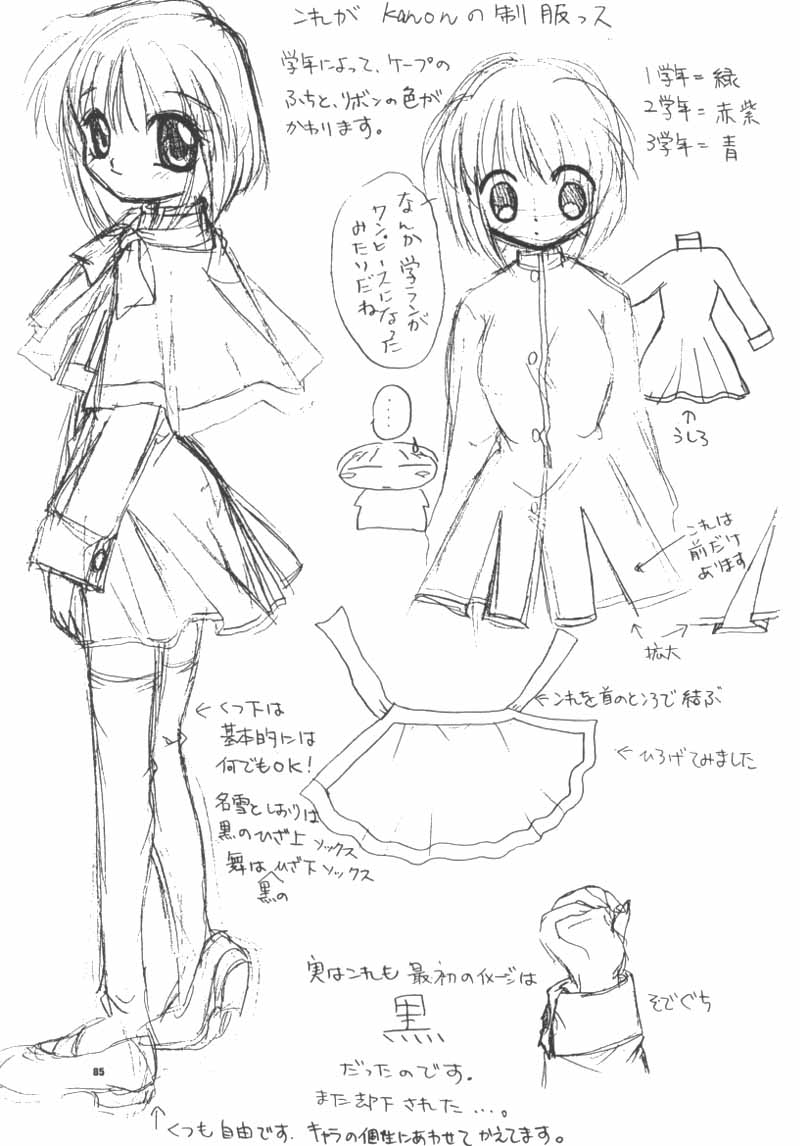 これが kanonの制服っス
学年によって、ケープの
ふちと、リボンの色が
かわります。
1学年=緑
2学年=赤紫
3学年=青
なんか学ランが
ワンピースになった
みたいだね
……
うしろ
これは
前だけ
あります
拡大
これを首のところで結ぶ
ひろげてみました
くつ下は
基本的には
何でもOK!
名雪としおりは
黒のひざ上ソックス
舞は黒のひざ下ソックス
実はこれも最初のイメージは
黒
だったのです.
また却下された…。
そでぐち
85
くつも自由です.キャラの個性にあわせてかえてます。